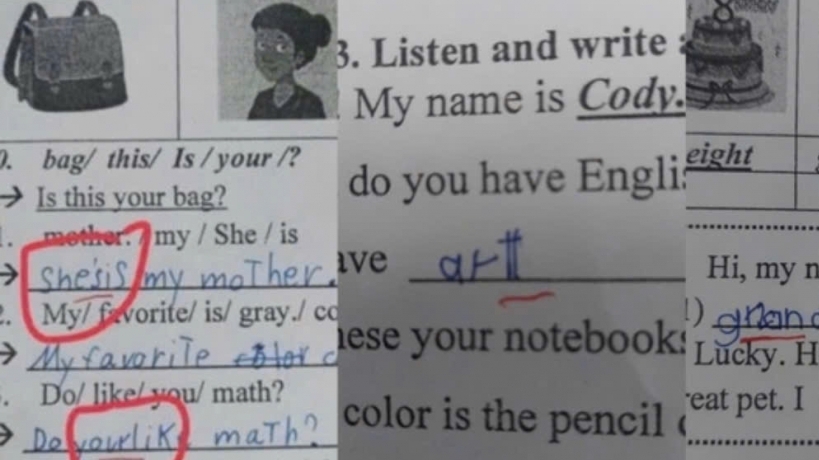 0. bag/ this/ Is / your /?
→ Is this your bag?
1. mother. / my / She / is
→ She'sis my moTher.
2. My/ favorite/ is/ gray./ co
→ My favoriTe color c
Do/ like/ you/ math?
→ Do yourlik maTh?
3. Listen and write
My name is Cody.
do you have Englis
ave art
hese your notebooks
color is the pencil
8
eight
Hi, my n
1)
Lucky. H
reat pet. I